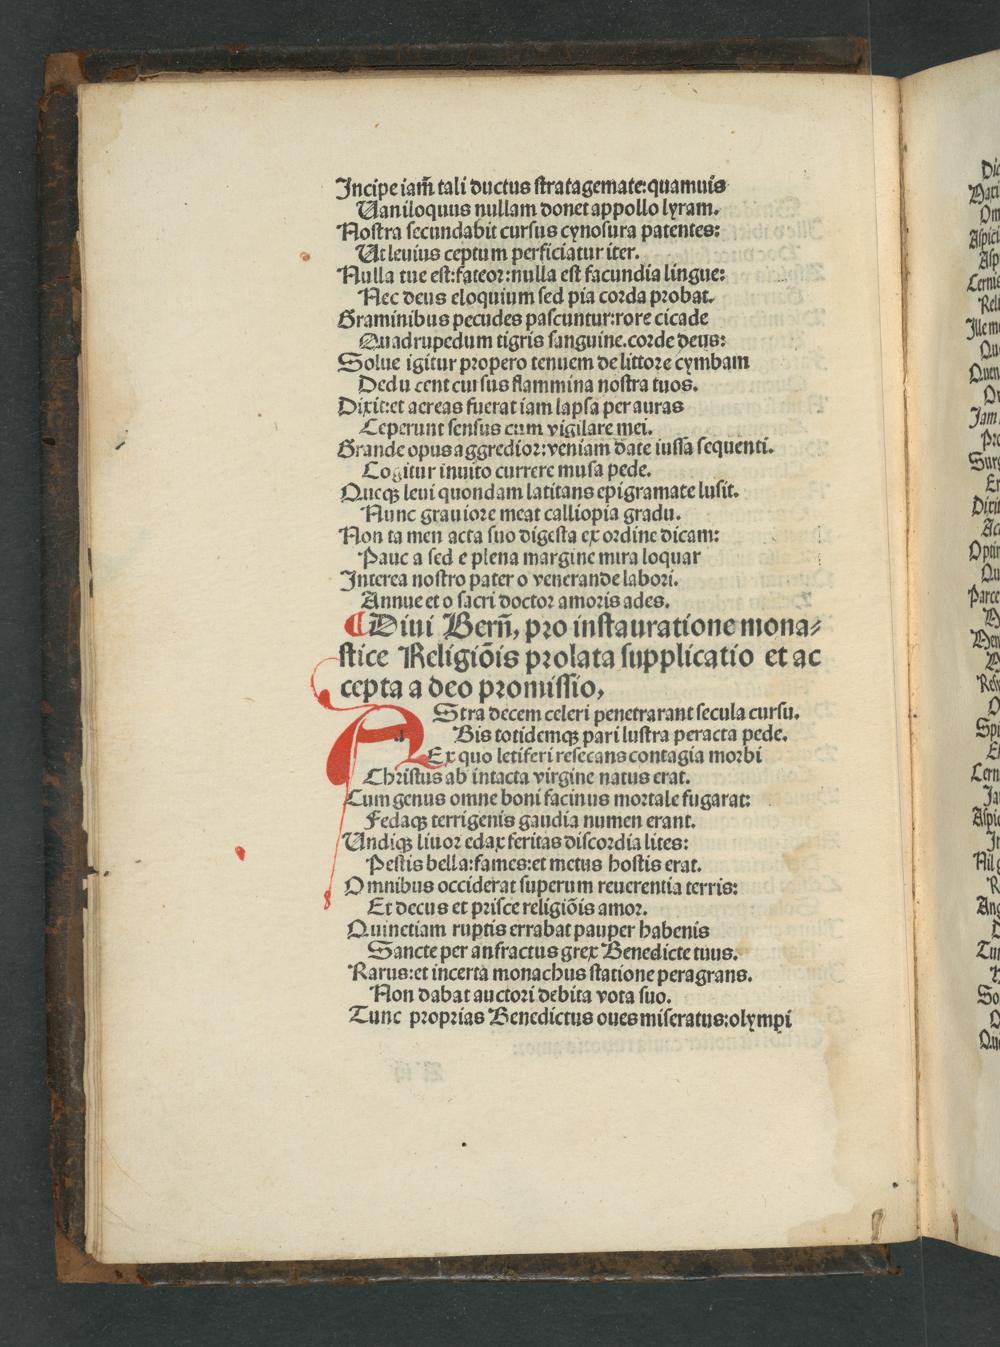 Incipe iam̃ tali ductus stratagemate: quamuis
Uaniloquus nullam donet appollo lyram.
Nostra secundabit cursus cynosura patentes:
Ut leuius ceptum perficiatur iter.
Nulla tue est: fateor: nulla est facundia lingue:
Nec deus eloquium sed pia corda probat.
Graminibus pecudes pascuntur: rore cicade
Quadrupedum tigris sanguine. corde deus:
Solue igitur propero tenuem de littore cymbam
Deducent cursus flammina nostra tuos.
Dixit: et aereas fuerat iam lapsa per auras
Ceperunt sensus cum vigilare mei.
Grande opus aggredior: veniam date iussa sequenti.
Cogitur inuito currere musa pede.
Queqꝫ leui quondam latitans epigramate lusit.
Nunc grauiore meat calliopia gradu.
Non tamen acta suo digesta ex ordine dicam:
Pauca sed e plena margine mira loquar
Interea nostro pater o venerande labori.
Annue et o sacri doctor amoris ades.
¶ Diui Bern̄, pro instauratione mona⸗
stice Religiõis prolata supplicatio et ac
cepta a deo promissio,
AStra decem celeri penetrarant secula cursu.
Bis totidemqꝫ pari lustra peracta pede.
Ex quo letiferi resecans contagia morbi
Christus ab intacta virgine natus erat.
Cum genus omne boni facinus mortale fugarat:
Fedaqꝫ terrigenis gaudia numen erant.
Undiqꝫ liuor edax feritas discordia lites:
Pestis bella: fames: et metus hostis erat.
Omnibus occiderat superum reuerentia terris:
Et decus et prisce religiõis amor.
Quinetiam ruptis errabat pauper habenis
Sancte per anfractus grex Benedicte tuus.
Rarus: et incerta monachus statione peragrans.
Non dabat auctori debita vota suo.
Tunc proprias Benedictus oues miseratus: olympi